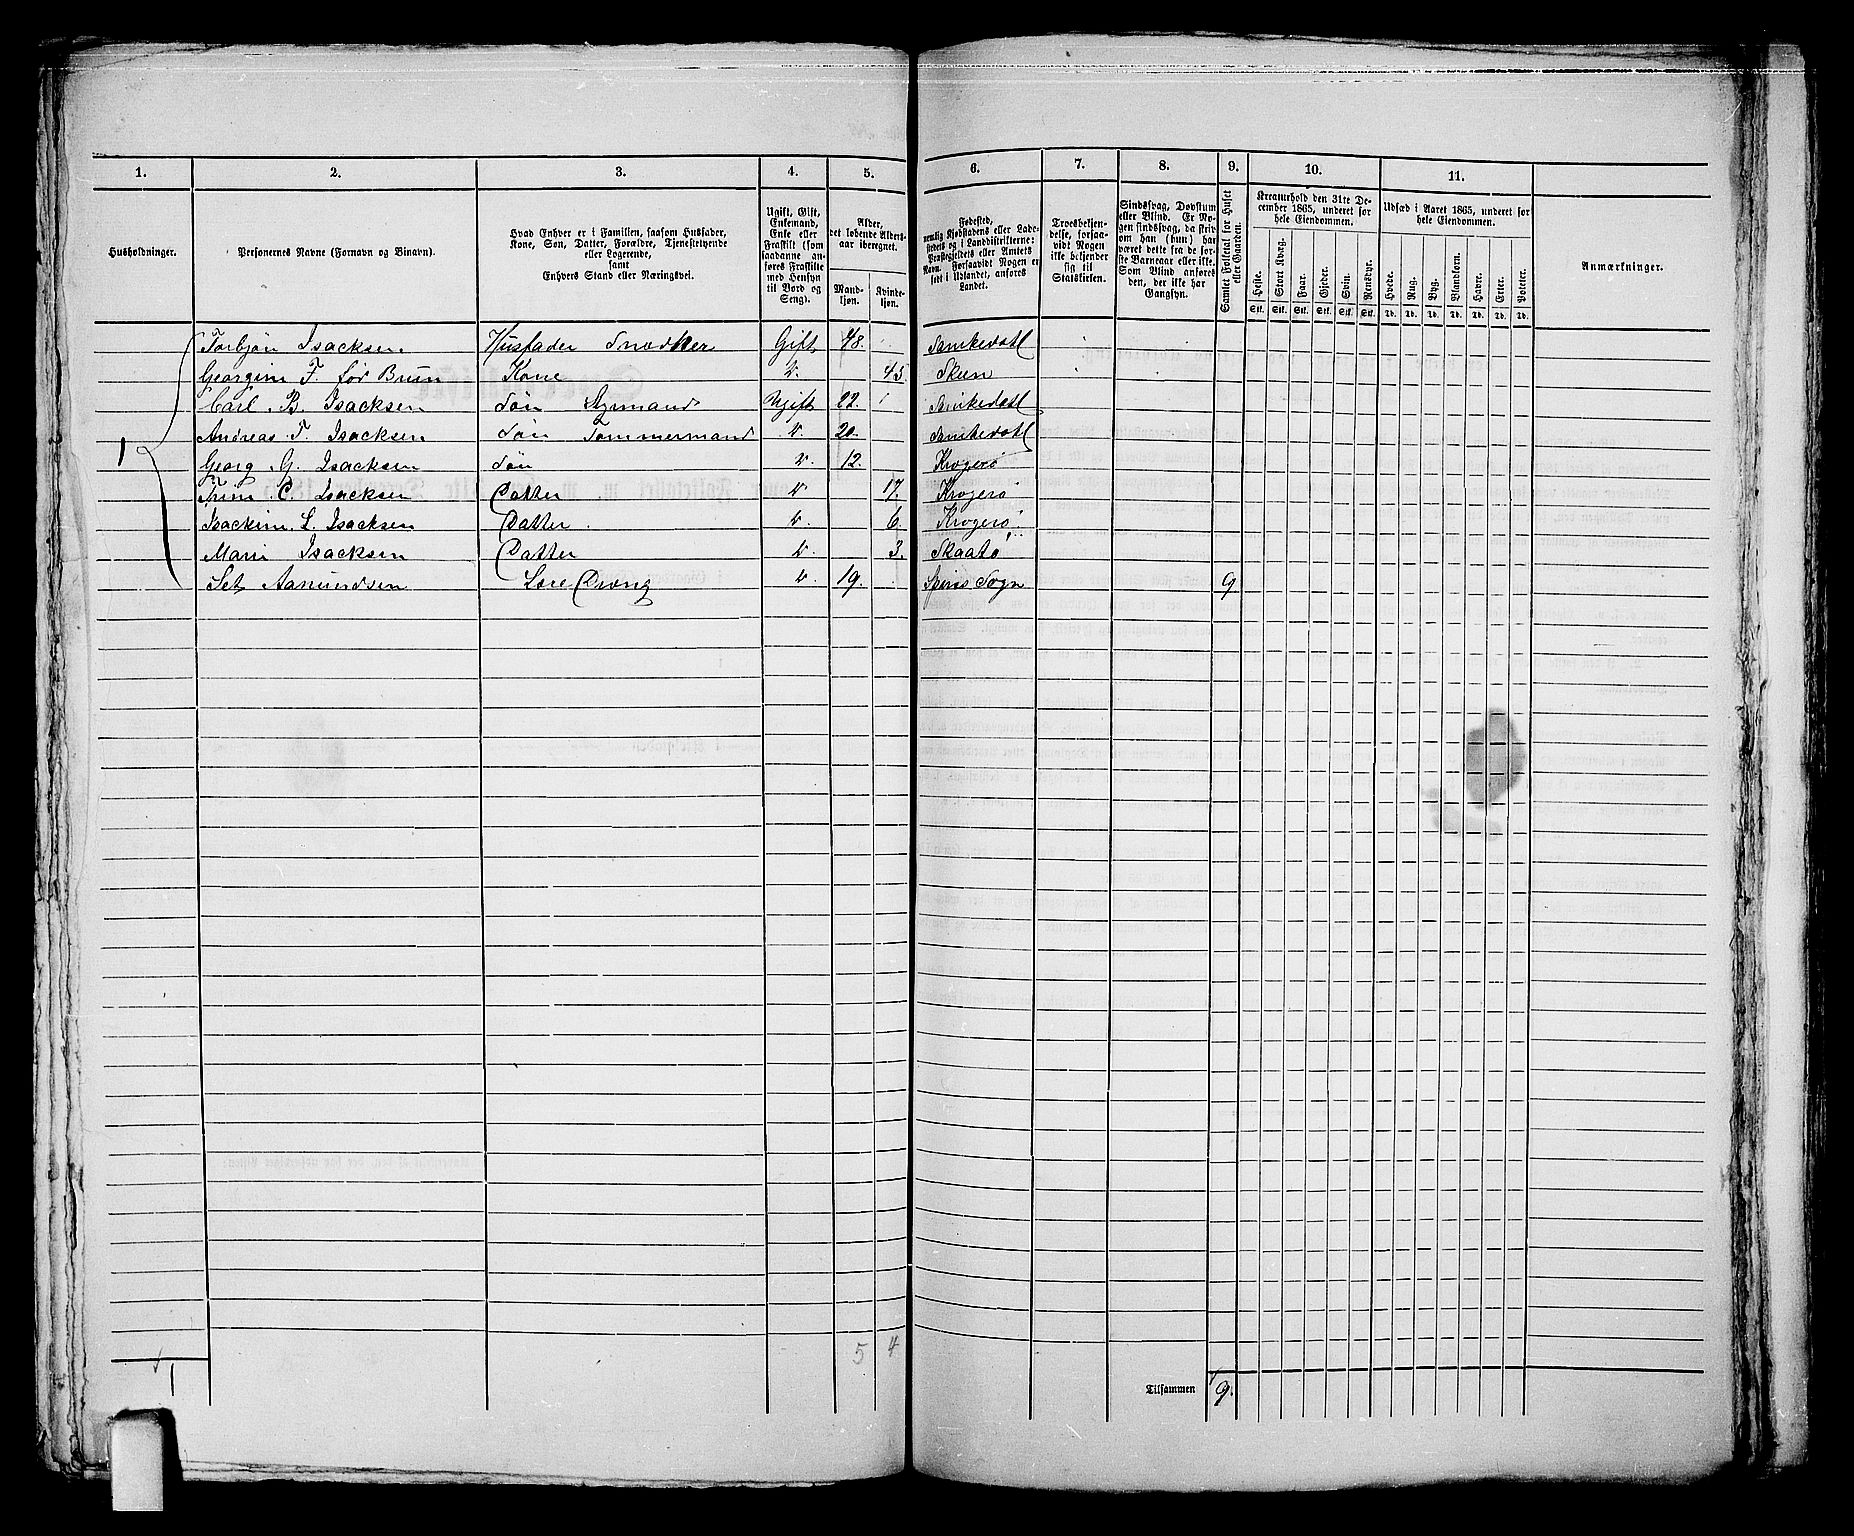 1. 2. 3. 4. 5. 6. 7. 8. 9. 10. 11.
Husholdninger.
Personernes Navne (Fornavn og Binavn).
Hvad Enhver er i Familien, saasom Husfader,
Kone, Søn, Datter, Forældre, Tjenestetyende
eller Logerende,
samt
Enhvers Stand eller Næringsvei.
Ugift, Gift,
Enkemand,
Enke eller
Fraskilt (som
saadanne an-
føres Fraskilte
med Hensyn
til Bord og
Seng).
Alder,
det løbende Alders-
aar iberegnet.
Mand-
kjøn.
Kvinde-
kjøn.
Fødested,
nemlig Kjøbstadens eller Lade-
stedets og i Landdistrikterne:
Præstegjeldets eller Amtets
Navn. Forsaavidt Nogen er
født i Udlandet, anføres
Landet.
Troesbekjen-
delse, forsaa-
vidt Nogen
ikke bekjender
sig til
Statskirken.
Sindssvag, Døvstum
eller Blind. Er No-
gen sindssvag, da skriv
om han (hun) har
været dette fra de før-
ste Barneaar eller ikke.
Som Blind anføres
den, der ikke har
Gangsyn.
Samlet Folketal for Huset
eller Gaarden.
Kreaturhold den 31te De-
cember 1865, underet for
hele Eiendommen.
Heste. Stort Kvæg. Faar. Gjeder. Svin. Rensdyr.
Stk. Stk. Stk. Stk. Stk. Stk.
Udsæd i Aaret 1865, underet for
hele Eiendommen.
Hvede. Rug. Byg. Blandkorn. Havre. Erter. Poteter.
Td. Td. Td. Td. Td. Td. Td.
Anmærkninger.
1
Torbjøn Isacksen. Husfader Snedker Gift 48. Sanikedahl
Georgine F. før Brun Kone v. 43. Skien
Carl. B. Isacksen Søn Ugift 22. Sanikedahl
Andreas T. Isacksen Søn Tømmermand v. 20. Sanikedahl
Georg G. Isacksen Søn v. 12. Kragerø
Trine C. Isacksen Datter v 17. Kragerø
Isackine. L. Isacksen Datter. v. 6. Kragerø
Marie Isacksen Datter v. 3. Skaatø
Set Aamundsen Lære Dreng v. 19. Sogn 9
1 5 4
Tilsammen 9.